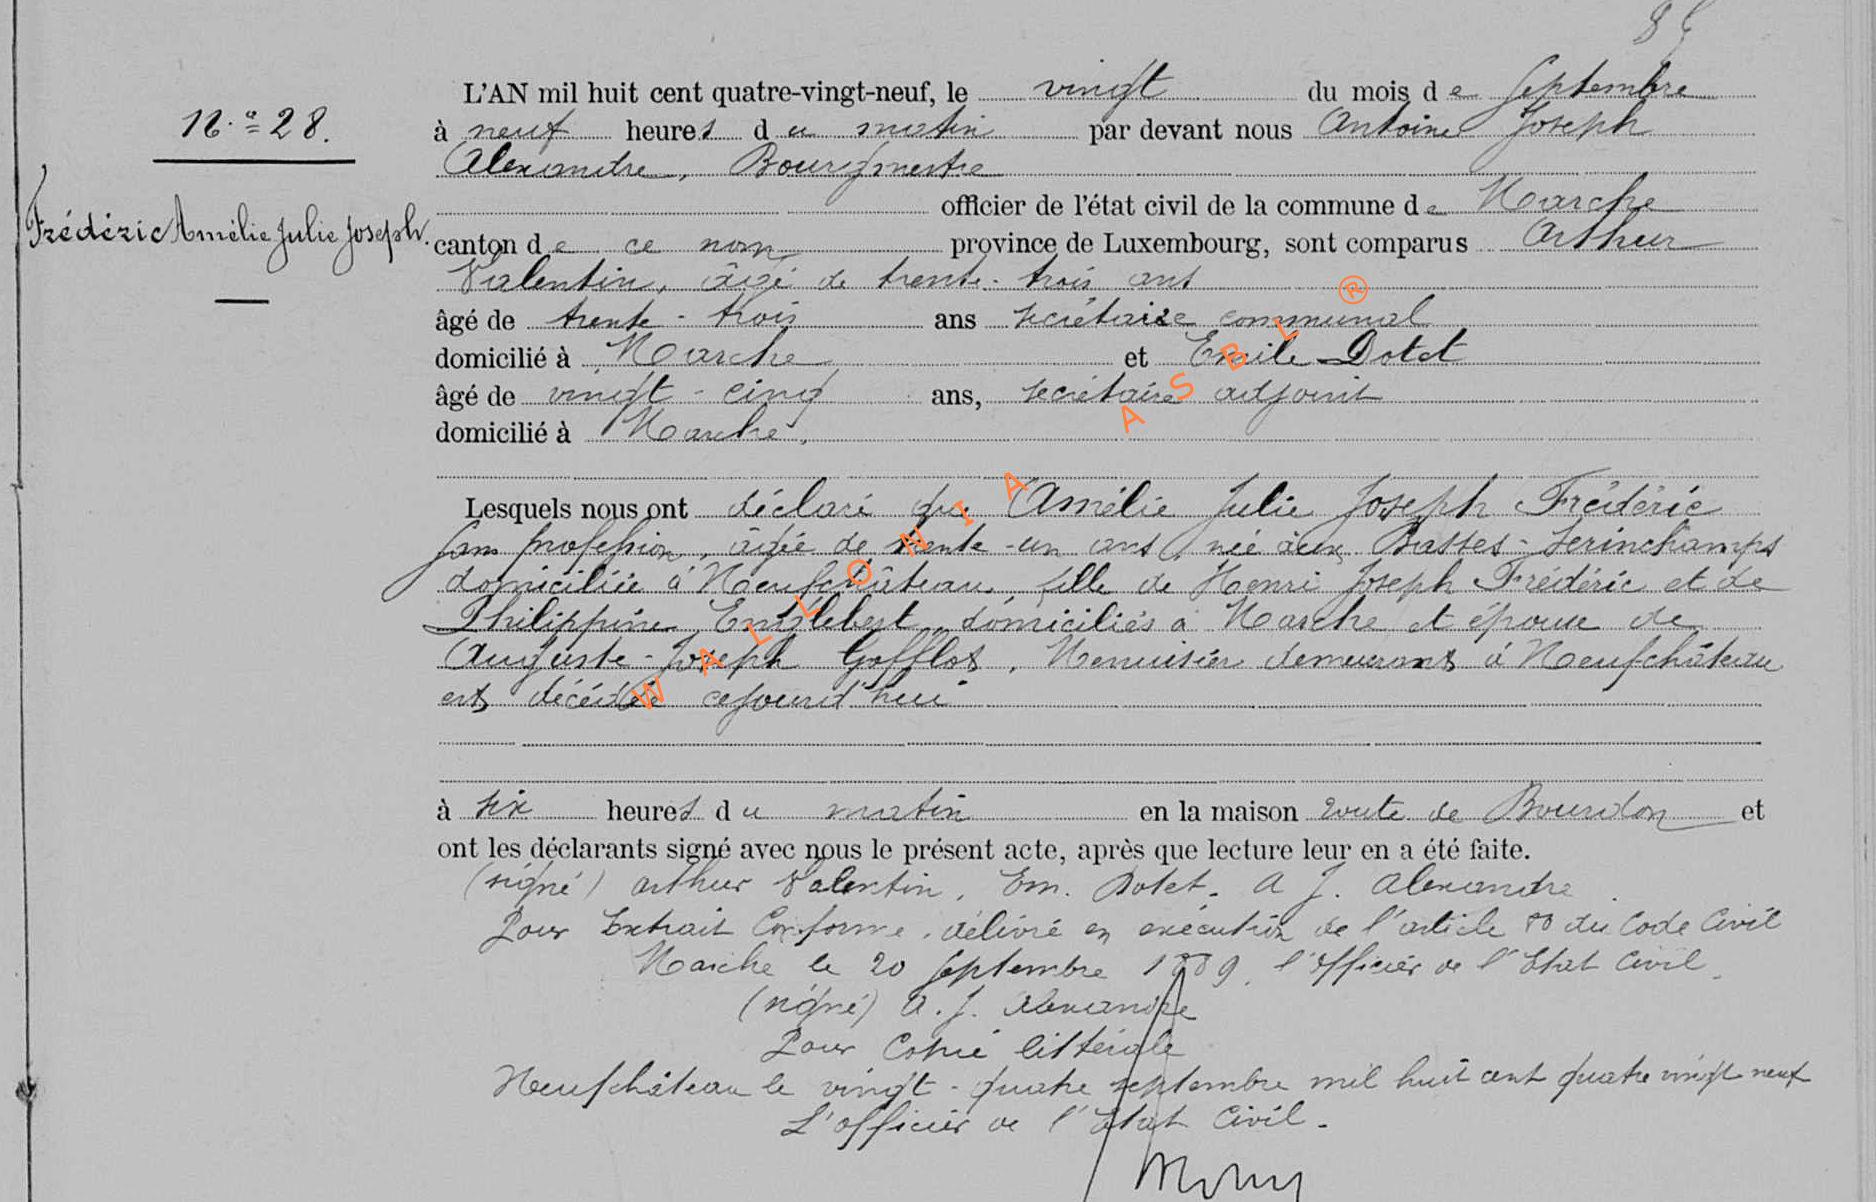 85
N.º = 28.
Frédéric Amélie Julie Joseph.
L'AN mil huit cent quatre-vingt-neuf, le vingt du mois de Septembre
à neuf heures du matin par devant nous Antoine Joseph
Alexandre, Bourgmestre
officier de l'état civil de la commune de Marche
canton de ce nom province de Luxembourg, sont comparus Arthur
Valentin, âgé de trente-trois ans
âgé de trente-trois ans secrétaire communal
domicilié à Marche et Emile Dotet
âgé de vingt-cinq ans, secrétaire adjoint
domicilié à Marche.
Lesquels nous ont déclaré que Amélie Julie Joseph Frédéric
sans profession, âgée de trente-un ans, née aux Basses-Serinchamps
domiciliée à Neufchâteau, fille de Henri Joseph Frédéric et de
Philippine Englebert, domiciliés à Marche et épouse de
Auguste-Joseph Gofflot, Menuisier demeurant à Neufchâteau
est décédée cejourd'hui
à six heures du matin en la maison route de Bourdon et
ont les déclarants signé avec nous le présent acte, après que lecture leur en a été faite.
(signé) Arthur Valentin, Em. Dotet. A J. Alexandre
Pour Extrait Conforme, délivré en exécution de l'article 80 du Code Civil
Marche le 20 Septembre 1889, l'Officier de l'Etat Civil.
(signé) A. J. Alexandre
Pour Copie littérale
Neufchâteau le vingt-quatre septembre mil huit cent quatre vingt neuf
L'officier de l'Etat Civil.
WALLONIA ASBL ®